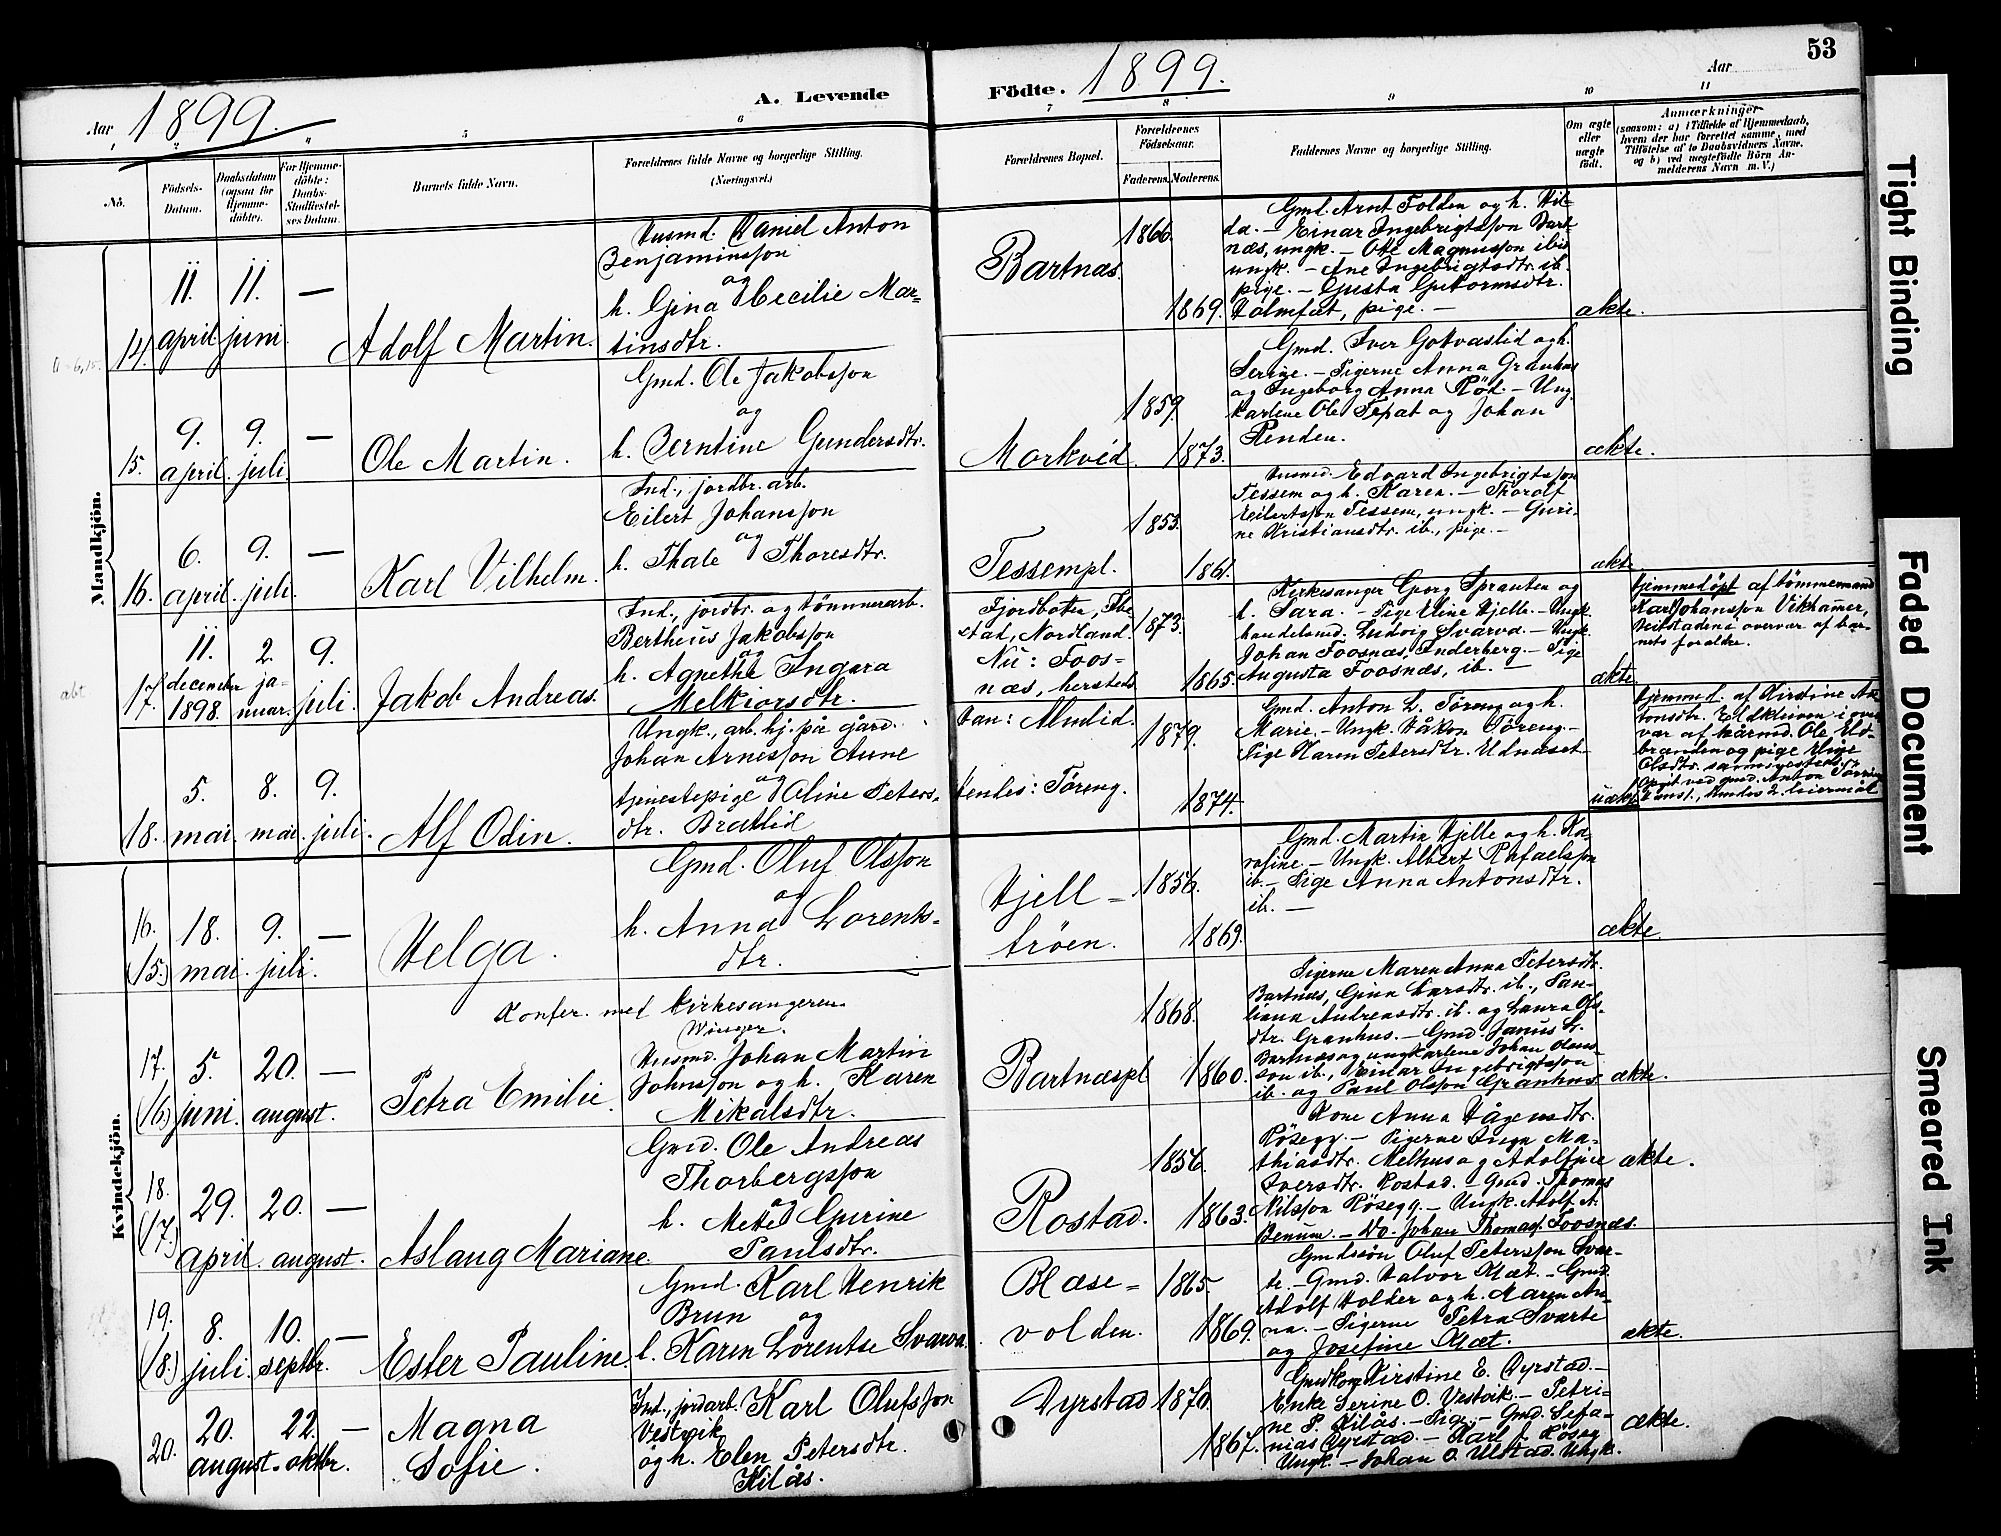 53
Aar, 1899.
A. Levende
Födte. 1899.
Aar
5
6
7
8
9
10
11
No.
Födsels-
Datum.
Daabsdatum
(ogsaa for
Hjemme-
döbte).
For Hjemme-
döbte:
Daabs-
Stadfæstel-
ses Datum.
Barnets fulde Navn.
Forældrenes fulde Navne og borgerlige Stilling.
(Næringsvei.)
Forældrenes Bopæl.
Forældrenes
Födselsaar.
Faderens. Moderens.
Faddernes Navne og borgerlige Stilling.
Om ægte
eller
uægte
födt.
Anmærkninger
(saasom: a) i Tilfælde af Hjemmedaab,
hvem der har forrettet samme, med
Tilföielse af to Daabsvidners Navne.
og b) ved uægtefödte Börn An-
melderens Navn m.V.)
Mandkjön.
14. 11. april 11. juni —
Adolf Martin.
Husmd. Daniel Anton
Benjaminsson
og
h. Gina Cecilie Mar-
tinsdtr.
Bartnæs
1866
1869.
Gmd. Arnt Folden og h. Hil-
da. — Einar Ingebrigtsson Bart-
næs, ungk. — Ole Magnusson ibid
ungk. — Ane Ingebrigtsdtr. ib.
pige. — Gusta Guttormsdtr.
Holmset, pige. —
ækte.
15. 9. april. 9. juli. —
Ole Martin.
Gmd. Ole Jakobsson
og
h. Berntine Gundersdtr.
Morkved.
1859.
1873.
Gmd. Iver Gotvaslid og h.
Serine. — Pigerne Anna Granhus
og Ingeborg Anna Röd. — Ung-
karlene Ole Tepat og Johan
Renden.
ækte.
16. 6. april. 9. juli. —
Karl Vilhelm.
Ind., jordbr. arb.
Eilert Johansson
og
h. Thale Thoresdtr.
Tessempl.
1853.
1861.
Husmd. Edvard Ingebrigtsson
Tessem og h. Karen. — Thorolf
Eilertsson Tessem, ungk. — Guri-
ne Kristiansdtr. ib., pige. —
ækte
17. 11. december 1898. 2. januar. 9. juli.
Jakob Andreas.
Ind., jordbr. og tömmerarb.
Bertheus Jakobsson
og
h. Agnethe Ingara
Melkiorsdtr.
Fjordbotten, Ibe-
stad, Nordland.
Nu: Foos-
næs, hersteds
1873.
1865.
Kirkesanger Georg Sprauten og
h. Sara. — Pige Eline Hjelle. — Ungk.
handelsmd. Ludvig Svarva. — Ungk.
Johan Foosnæs, Inderberg. — Pige
Augusta Foosnæs, ib. —
ækte.
Hjemmedöpt af tömmermand
Karl Johansson Vikhamer,
Beitstaden i overvær af bar-
nets forældre.
18. 5. mai. 8. mai. 9. juli.
Alf Odin.
Ungk., arb. hj. på gård.
Johan Arnesson Aune
og
tjenestepige Oline Peters-
dtr. Bratlid
Han: Almlid.
Hendes: Töreng.
1879.
1874.
Gmd. Anton L. Töreng og h.
Marie. — Ungk. Håkon Töreng. —
Pige Karen Petersdtr. Udnæset.
uækt
Hjemmed. af Kirstine An-
tonsdtr.
var af kårmd. Ole
og pige
Olsdtr. sammesteds.
Opgit ved gmd. Anton Töreng
Hendes 2. leiermål
Kvindekjön.
16.
(15.) 18. mai. 9. juli. —
Helga.
Gmd. Oluf Olsson
og
h. Anna Lorents-
dtr.
Hjell-
tröen.
1856.
1869.
Gmd. Martin Hjelle og h. Ka-
rafine. — Ungk. Albert Rafaelsson
ib. — Pige Anna Antonsdtr.
ib. —
ækte.
Konfer. med kirkesangeren
17.
(16) 5. juni. 20. august. —
Petra Emilie.
Husmd. Johan Martin
Johnsson og h. Karen
Mikalsdtr.
Bartnæspl
1868.
1860.
Pigerne Maren Anna Petersdtr.
Bartnæs, Gina Larsdtr. ib., Pau-
liana Andreasdtr. ib. og Laura Ols-
dtr. Granhus. — Gmd. Janus L.
Bartnæs og ungkarlene Johan Olaus-
son ib., Einar Ingebrigtsson
ib. og Paul Olsson Granhus
ækte.
18.
(17.) 29. april. 20. august. —
Aslaug Mariane.
Gmd. Ole Andreas
Thorbergsson
og
h. Mette Gurine
Paulsdtr.
Rostad.
1856.
1863.
Kone Anna Hågensdtr.
Rösegg. — Pigerne Inga Ma-
thiasdtr. Melhus og Adolfine
Iversdtr. Rostad. — Gmd. Thomas
Nilsson Rösegg. — Ungk. Adolf A.
Benum. — Do. Johan Thomas. Foosnæs.
ækte.
19.
(18.) 8. juli. 10. septbr. —
Ester Pauline.
Gmd. Karl Henrik
Brun og
h. Karen Lorentse Svarva.
Blæse-
volden.
1865.
1869.
Gmdssön Oluf Petersson Svar-
te. — Gmd. Halvor Klæt. — Gmd.
Adolf Holder og h. Maren An-
na. — Pigerne Petra Svarte
og Josefine Klæt.
ækte.
20. 20. august. 22. oktbr. —
Magna
Sofie.
Ind., jordarb. Karl Olufsson
Vestvik
og h. Elen Petersdtr.
Kilås.
Dyrstad
1870.
1867.
Gmdkone Kirstine E. Dyrstad. —
Enke Serine O. Vestvik. — Petri-
ne P. Kilås. — Pige. — Gmd. Sefa-
nias Dyrstad. — Karl J. Rösegg
Ungk. — Johan O. Ulstad. Ungk.
ækte.
Tight Binding
Faded Document
Smeared Ink